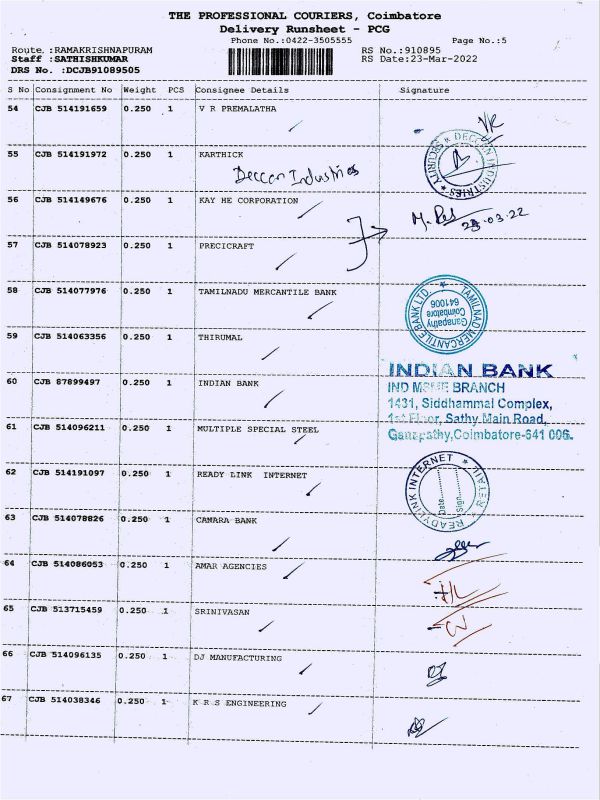 THE PROFESSIONAL COURIERS, Coimbatore
Delivery Runsheet - PCG
Phone No.:0422-3505555
Page No.:5
Route :RAMAKRISHNAPURAM
RS No.:910895
Staff :SATHISHKUMAR
RS Date:23-Mar-2022
DRS No. :DCJB91089505
S No Consignment No Weight PCS Consignee Details Signature
54 CJB 514191659 0.250 1 V R PREMALATHA
VR
55 CJB 514191972 0.250 1 KARTHICK
Deccan Industries
DECCAN INDUSTRIES ★ SECURITY ★
56 CJB 514149676 0.250 1 KAY HE CORPORATION
23.03.22
57 CJB 514078923 0.250 1 PRECICRAFT
58 CJB 514077976 0.250 1 TAMILNADU MERCANTILE BANK
TAMILNAD MERCANTILE BANK LTD. ★
Ganapathy
Coimbatore
641006
59 CJB 514063356 0.250 1 THIRUMAL
60 CJB 87899497 0.250 1 INDIAN BANK
INDIAN BANK
IND MSME BRANCH
1431, Siddhammal Complex,
1st Floor, Sathy Main Road,
Ganapathy,Coimbatore-641 006.
61 CJB 514096211 0.250 1 MULTIPLE SPECIAL STEEL
62 CJB 514191097 0.250 1 READY LINK INTERNET
READYLINK INTERNET ★ RETAIL ★
Date
Sign
63 CJB 514078826 0.250 1 CAMARA BANK
64 CJB 514086053 0.250 1 AMAR AGENCIES
65 CJB 513715459 0.250 1 SRINIVASAN
66 CJB 514096135 0.250 1 DJ MANUFACTURING
67 CJB 514038346 0.250 1 K R S ENGINEERING